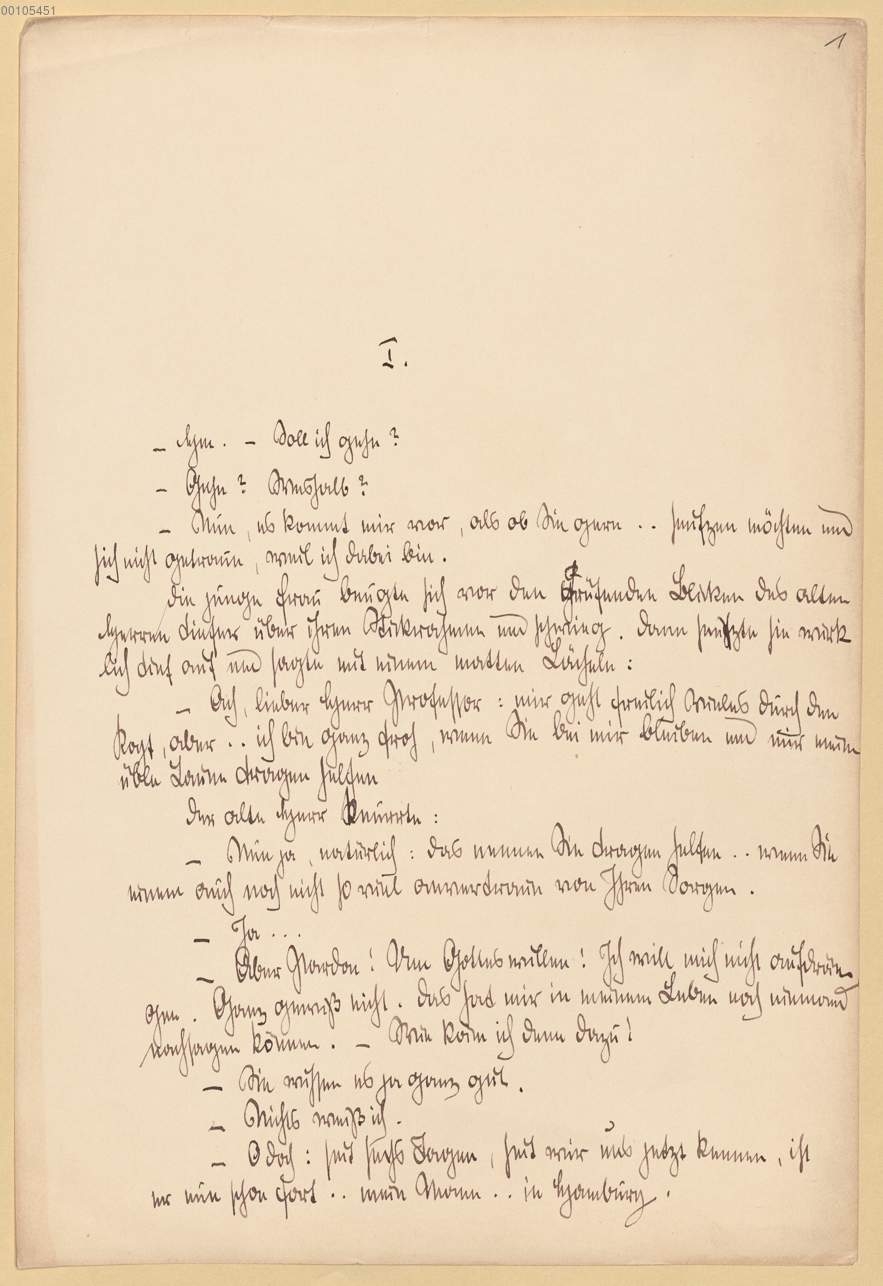 00105451
1
I.
– Hm. – Soll ich gehn?
– Gehn? Weshalb?
– Nun, es kommt mir vor, als ob Sie gern .. seufzen möchten und
sich nicht getraun, weil ich dabei bin.
Die junge Frau beugte sich vor den prüfenden Blicken des alten
Herren tiefer über ihren Stickrahmen und schwieg. Dann seufzte sie wirk
lich tief auf und sagte mit einem matten Lächeln:
– Ach, lieber Herr Professor: mir geht freilich Vieles durch den
Kopf, aber .. ich bin ganz froh, wenn Sie bei mir bleiben und mir meine
üble Laune tragen helfen
Der alte Herr knurrte:
– Nun ja, natürlich: das nennen Sie tragen helfen .. wenn Sie
einem auch noch nicht so viel anvertraun von Ihren Sorgen.
– Ja ...
– Aber Pardon! Um Gottes willen! Ich will mich nicht aufdrän-
gen. Ganz gewiß nicht. Das hat mir in meinem Leben noch niemand
nachsagen können. – Wie käm ich denn dazu!
– Sie wissen es ja ganz gut.
– Nichts weiß ich.
– O doch: seit sechs Tagen, seit wir uns jetzt kennen, ist
er nun schon fort .. mein Mann .. in Hamburg.